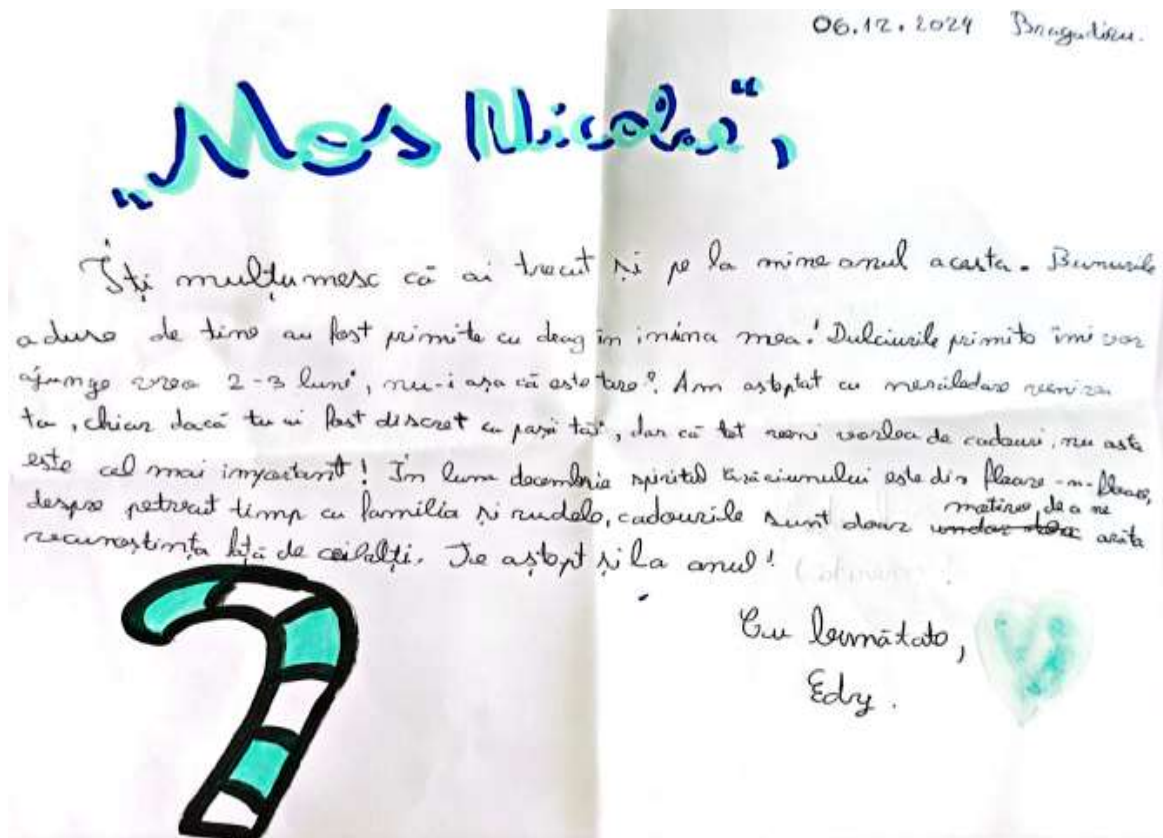 06.12.2024 Bragadiru.
„Mos Nicolae“,
Îți mulțumesc că ai trecut și pe la mine anul acesta. Bunurile
aduse de tine au fost primite cu drag în inima mea! Dulciurile primite îmi vor
ajunge vreo 2-3 luni, nu-i așa că este tare? Am așteptat cu nerăbdare venirea
ta, chiar dacă tu ai fost discret cu pașii tăi, dar că tot veni vorba de cadouri, nu asta
este cel mai important! În luna decembrie spiritul Crăciunului este din floare-n-floare,
despre petrecut timp cu familia și rudele, cadourile sunt doar motive, de a ne arăta
recunoștința față de ceilalți. Te aștept și la anul!
Cu bunătate,
Edy.